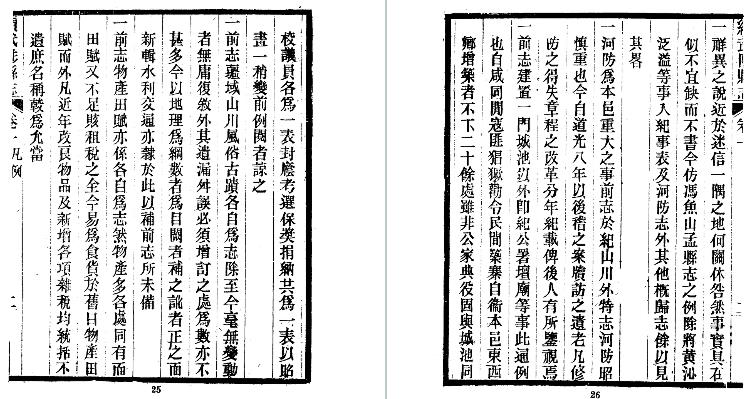 校議員各爲一表封廕考選保獎捐納共爲一表以昭
畫一稍變前例閱者諒之
一前志疆域山川風俗古蹟各自爲志除至今毫無變動
者無庸復敘外其遺漏舛誤必須增訂之處爲數亦不
甚多今以地理爲綱數者爲目闕者補之訛者正之而
新輯水利交通亦隸於此以補前志所未備
一前志物產田賦亦係各自爲志然物產多各處同有而
田賦又不足賅租稅之全今易爲食貨於舊日物產田
賦而外凡近年改良物品及新增各項雜稅均統括不
遺庶名稱較爲允當
續武陟縣志 卷一 凡例
25
續武陟縣志 卷一
一祥異之說近於迷信一隅之地何關休咎然事實具在
似不宜缺而不書今仿馮魚山孟縣志之例除將黃沁
泛溢等事入紀事表及河防志外其他概歸志餘以見
其畧
一河防爲本邑重大之事前志於紀山川外特志河防昭
慎重也今自道光八年以後稽之案牘訪之遺老凡修
防之得失章程之改革分年紀載俾後人有所鑒視焉
一前志建置一門城池以外卽紀公署壇廟等事此通例
也自咸同間寇匪猖獗勅令民間築寨自衞本邑東西
鄉增築者不下二十餘處雖非公家典役固與城池同
26